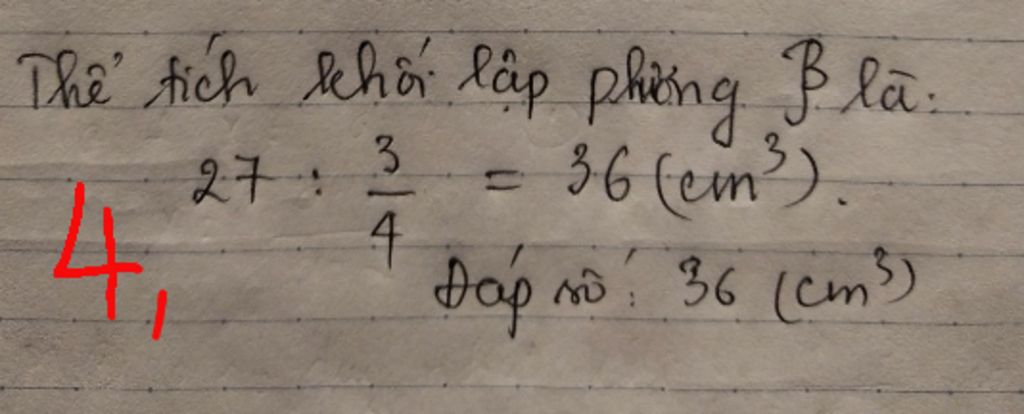 Thể tích khối lập phương B là.
27 : 3/4 = 36 (cm³).
4,
Đáp số: 36 (cm³)